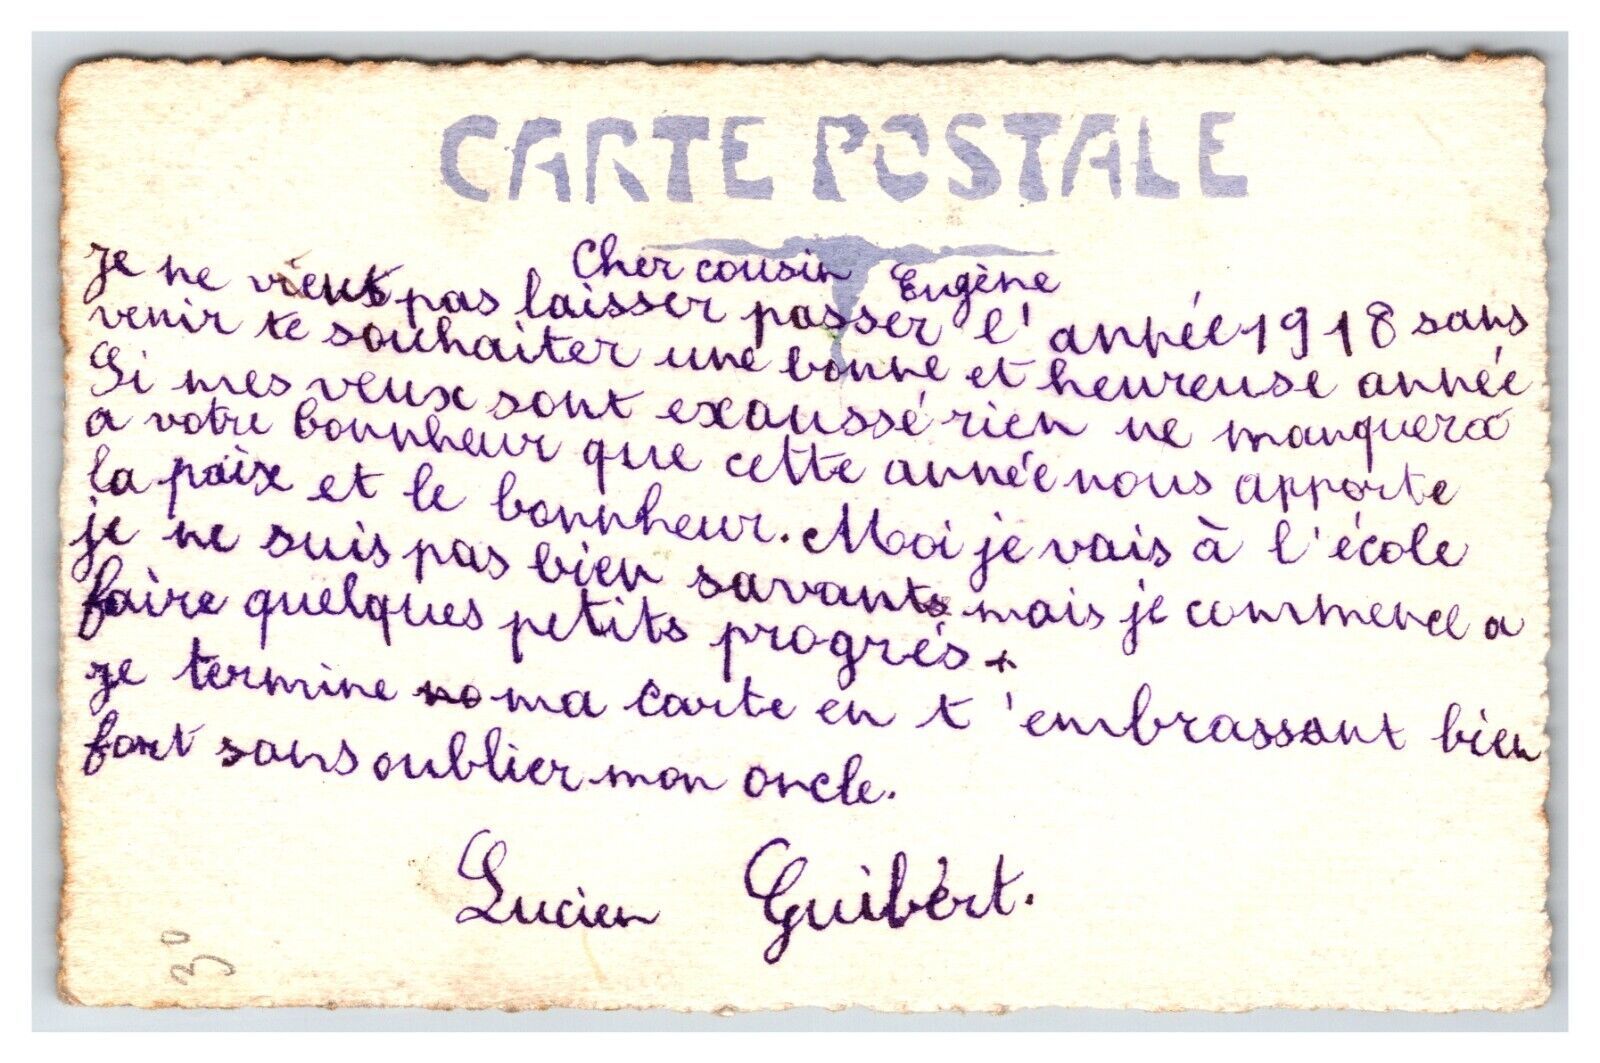 CARTE POSTALE
Cher cousin Eugène
Je ne viens pas laisser passer l'année 1918 sans
venir te souhaiter une bonne et heureuse année
Si mes veux sont exaussé rien ne manquera
a votre bonnheur que cette année nous apporte
la paix et le bonnheur. Moi je vais à l'école
je ne suis pas bien savants mais je commence a
faire quelques petits progrés.
Je termine no ma carte en t'embrassant bien
fort sans oublier mon oncle.
Lucien Guibert.
30